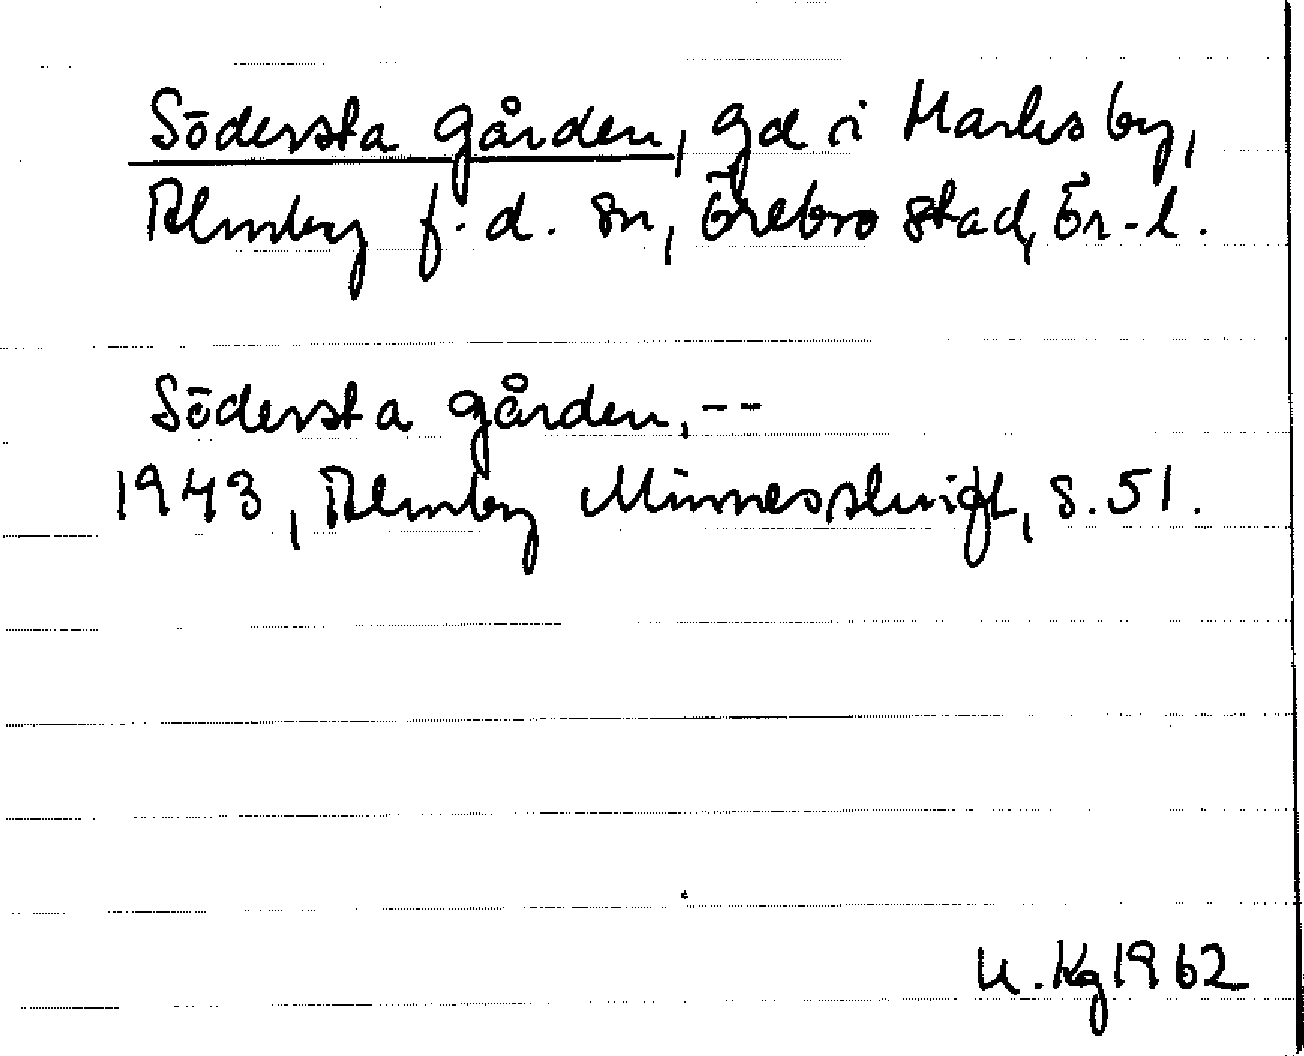 Södersta gården, gd i Marks by,
Almby f.d. sn, Örebro stad, Ör-l.
Södersta gården, --
1943, Almby Minnesskrift, s. 51.
K. Kg 1962